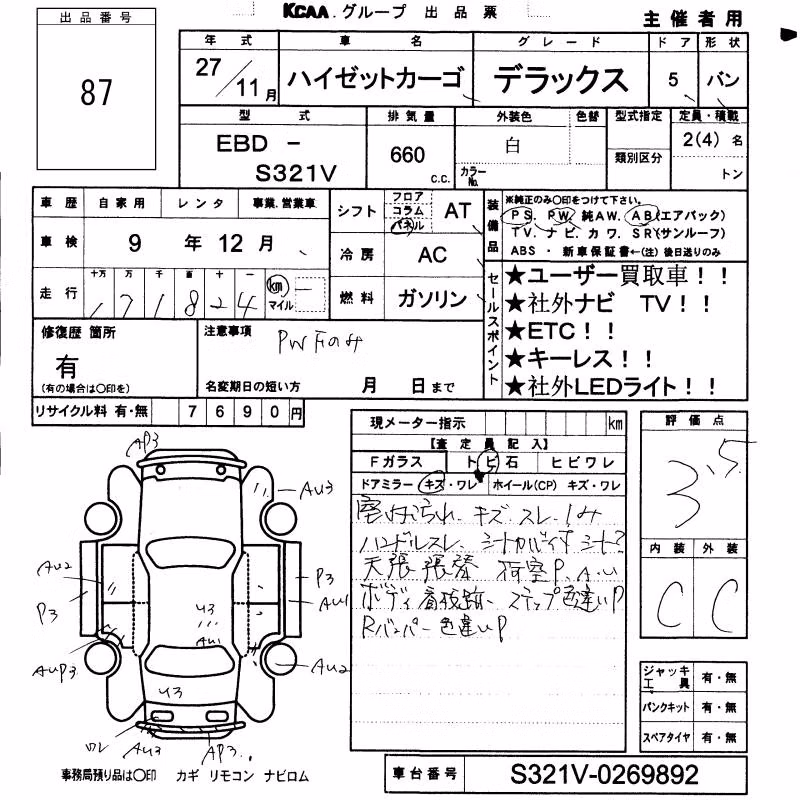 KCAA.グループ 出品票
主催者用
出品番号
87
年式 車名 グレード ドア 形状
27/11月 ハイゼットカーゴ デラックス 5 バン
型式 排気量 外装色 色替 型式指定 定員・積載
EBD - S321V
660 c.c.
白
カラーNo.
類別区分
2(4)名
トン
車歴 自家用 レンタ 事業.営業車
車検 9年12月
走行 十万 万 千 百 十 一
171824 km マイル
シフト フロア コラム パネル AT
冷房 AC
燃料 ガソリン
装備品
※純正のみ○印をつけて下さい。
PS. PW. 純AW. AB(エアバック)
TV. ナビ. カワ. SR(サンルーフ)
ABS ・ 新車保証書←(注)後日送りのみ
セールスポイント
★ユーザー買取車!!
★社外ナビ TV!!
★ETC!!
★キーレス!!
★社外LEDライト!!
修復歴 箇所
有
(有の場合は○印を)
注意事項
PW Fのみ
名変期日の短い方 月 日まで
リサイクル料 有・無 7690円
現メーター指示 km
【査定員記入】
Fガラス トビ石 ヒビワレ
ドアミラー キズ・ワレ ホイール(CP) キズ・ワレ
室内汚れ、キズ、スレ、シミ
ハンドルスレ、
天張張替 荷室P、AU
ボディ ステップ色違いP
Rバンパー色違いP
評価点
3.5
内装 外装
C C
ジャッキ 工具 有・無
パンクキット 有・無
スペアタイヤ 有・無
AP3
AU3
AU2
P3
P3
AU1
U3
AU1
AUP3
AU2
U3
ワレ
AU3
AP3
事務局預り品は○印 カギ リモコン ナビロム
車台番号 S321V-0269892